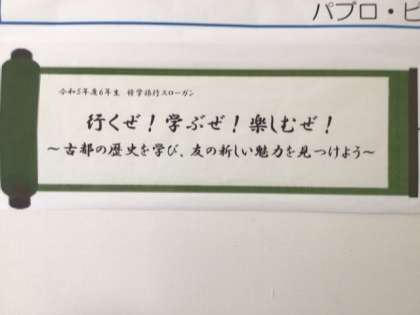 パブロ・ピ
令和5年度6年生 修学旅行スローガン
行くぜ！学ぶぜ！楽しむぜ！
～古都の歴史を学び、友の新しい魅力を見つけよう～